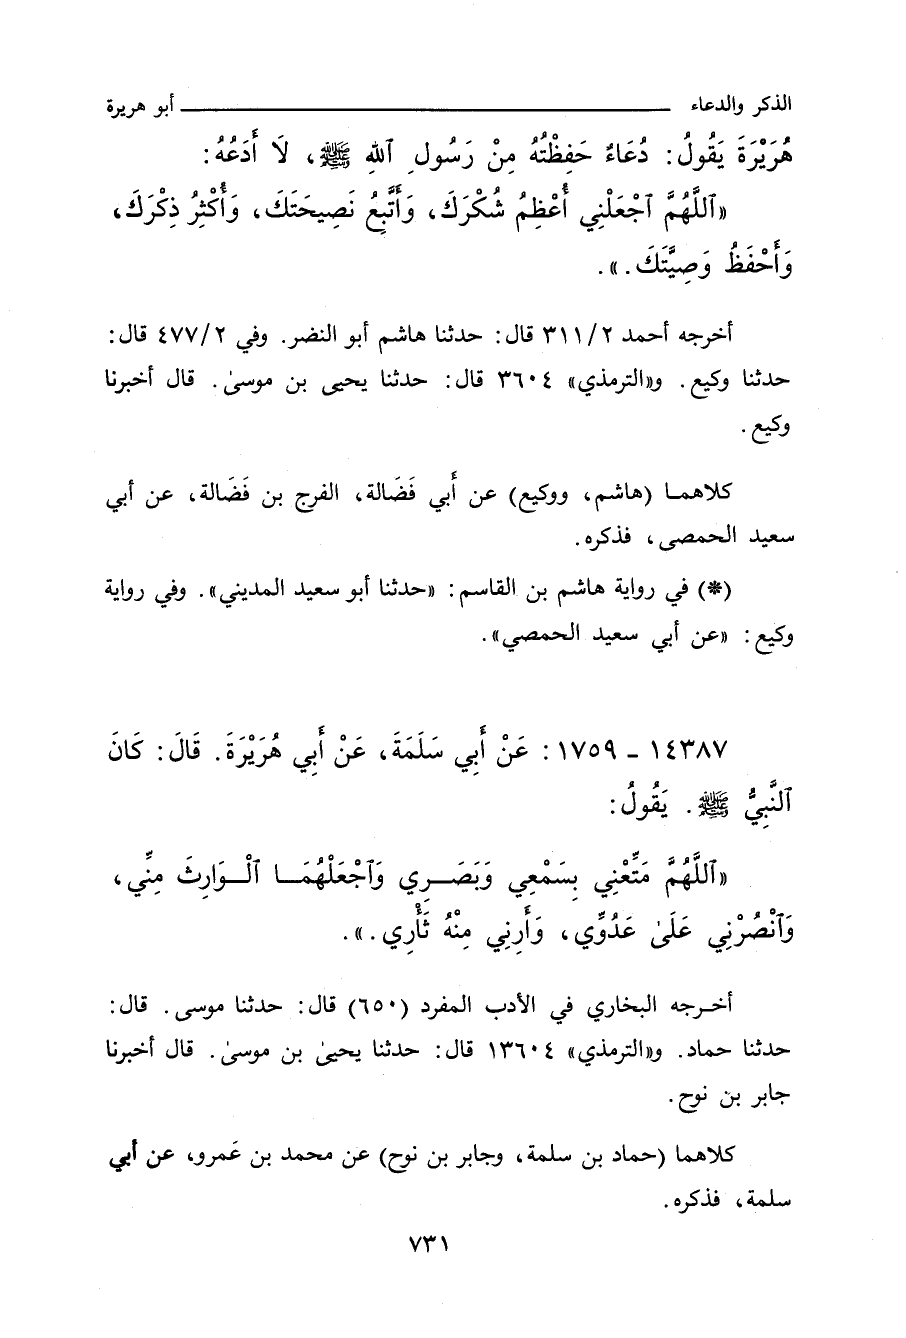 الذكر والدعاء ــــــــــــــــــــ أبو هريرة
هُرَيْرَةَ يَقُولُ: دُعَاءٌ حَفِظْتُهُ مِنْ رَسُولِ ٱللهِ ﷺ، لَا أَدَعُهُ:
«ٱللَّهُمَّ ٱجْعَلْنِي أُعْظِمُ شُكْرَكَ، وَأَتَّبِعُ نَصِيحَتَكَ، وَأُكْثِرُ ذِكْرَكَ،
وَأَحْفَظُ وَصِيَّتَكَ.».
أخرجه أحمد ٢/ ٣١١ قال: حدثنا هاشم أبو النضر. وفي ٢/ ٤٧٧ قال:
حدثنا وكيع. و«الترمذي» ٣٦٠٤ قال: حدثنا يحيى بن موسىٰ. قال أخبرنا
وكيع.
كلاهما (هاشم، ووكيع) عن أَبي فَضَالة، الفرج بن فَضَالة، عن أبي
سعيد الحمصى، فذكره.
(*) في رواية هاشم بن القاسم: «حدثنا أبو سعيد المديني». وفي رواية
وكيع: «عن أبي سعيد الحمصي».
١٤٣٨٧ - ١٧٥٩: عَنْ أَبِي سَلَمَةَ، عَنْ أَبِي هُرَيْرَةَ. قَالَ: كَانَ
ٱلنَّبِيُّ ﷺ. يَقُولُ:
«ٱللَّهُمَّ مَتِّعْنِي بِسَمْعِي وَبَصَرِي وَٱجْعَلْهُمَا ٱلْوَارِثَ مِنِّي،
وَٱنْصُرْنِي عَلَىٰ عَدُوِّي، وَأَرِنِي مِنْهُ ثَأْرِي.».
أخرجه البخاري في الأدب المفرد (٦٥٠) قال: حدثنا موسى. قال:
حدثنا حماد. و«الترمذي» ١٣٦٠٤ قال: حدثنا يحيىٰ بن موسىٰ. قال أخبرنا
جابر بن نوح.
كلاهما (حماد بن سلمة، وجابر بن نوح) عن محمد بن عَمرو، عن أبي
سلمة، فذكره.
٧٣١